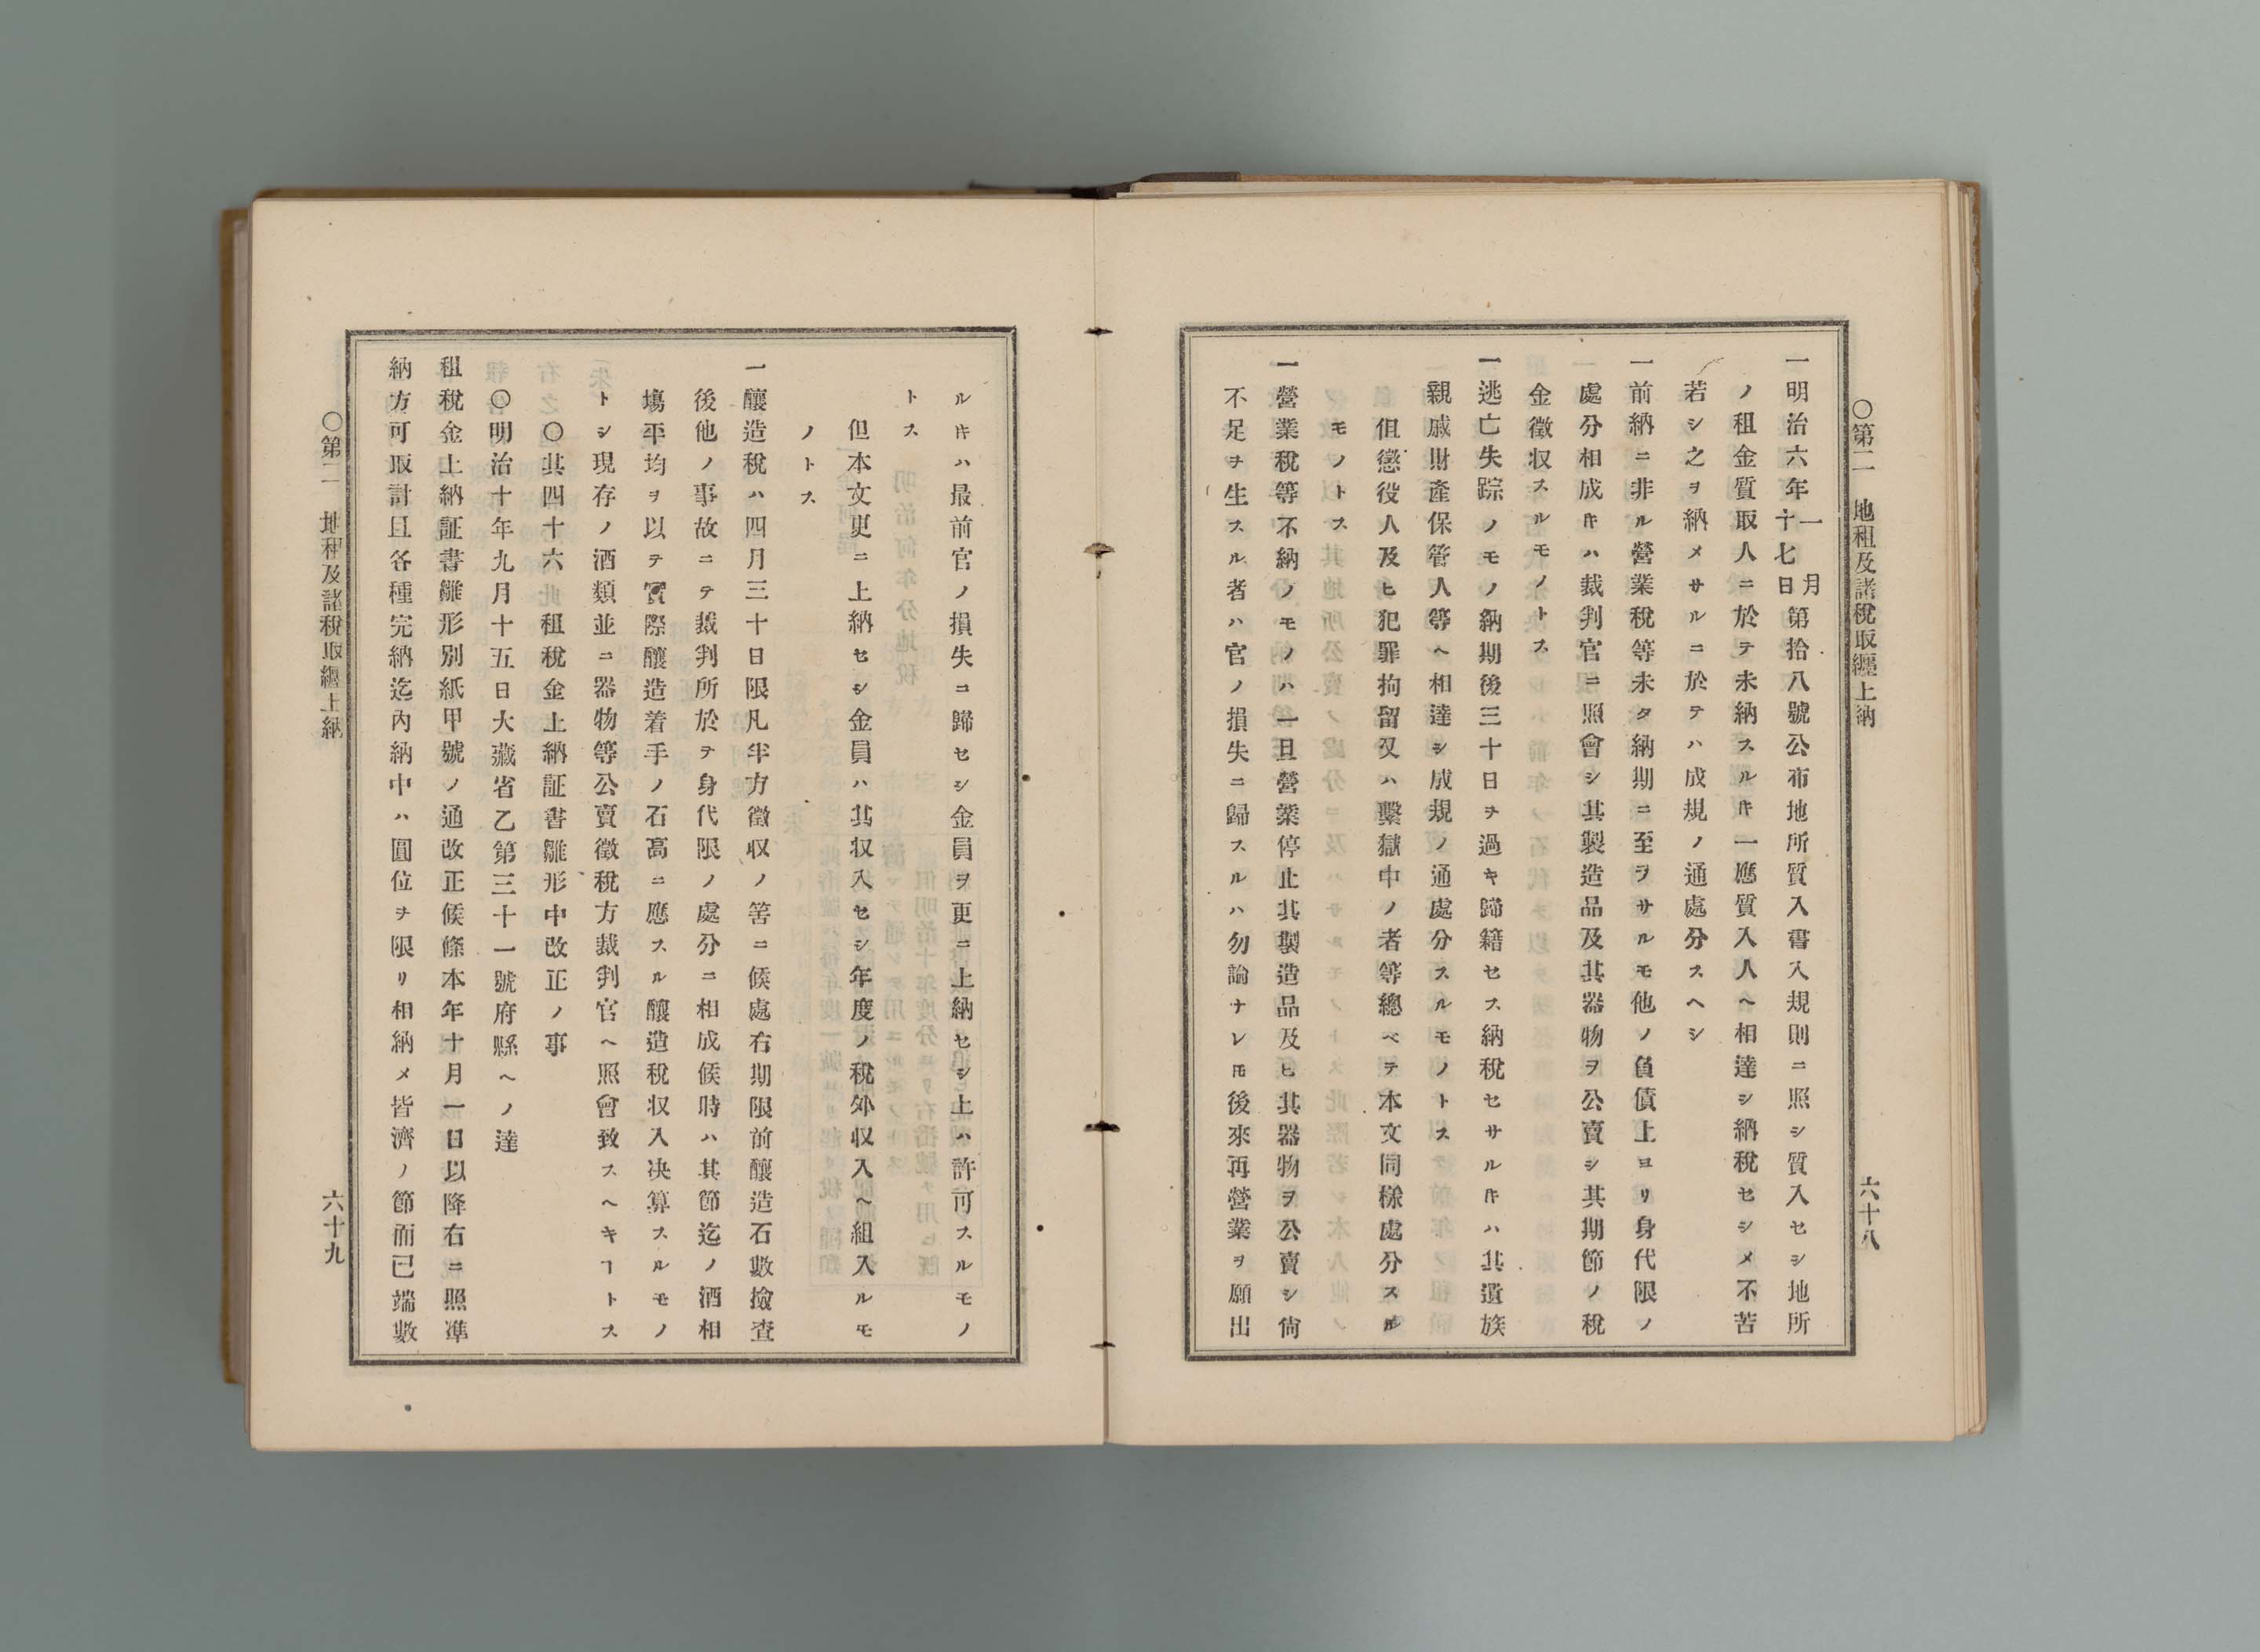 〇第二　地租及諸税取纒上納
六十八
一明治六年一月十七日第拾八號公布地所質入書入規則ニ照シ質入セシ地所
ノ租金質取人ニ於テ未納スルキ一應質入人ヘ相達シ納税セシメ不苦
若シ之ヲ納メサルニ於テハ成規ノ通處分スヘシ
一前納ニ非ル營業税等未タ納期ニ至ヲサルモ他ノ負債上ヨリ身代限ノ
處分相成ルキハ裁判官ニ照會シ其製造品及其器物ヲ公賣シ其期節ノ税
金徴収スルモノトス
一逃亡失踪ノモノ納期後三十日ヲ過キ歸籍セス納税セサルキハ其遺族
親戚財産保管人等ヘ相達シ成規ノ通處分スルモノトス
但懲役人及ヒ犯罪拘留又ハ繫獄中ノ者等總ベテ本文同様處分スル
モノトス
一營業税等不納ノモノハ一旦營業停止其製造品及ヒ其器物ヲ公賣シ尙
不足ヲ生スル者ハ官ノ損失ニ歸スルハ勿論ナレ𪜈後來再營業ヲ願出
ルキハ最前官ノ損失ニ歸セシ金員ヲ更ニ上納セシ上ハ許可スルモノ
トス
但本文更ニ上納セシ金員ハ其収入セシ年度ノ税外収入ヘ組入ルモ
ノトス
一釀造税ハ四月三十日限凡半方徴収ノ筈ニ候處右期限前釀造石數撿査
後他ノ事故ニテ裁判所於テ身代限ノ處分ニ相成候時ハ其節迄ノ酒相
塲平均ヲ以テ實際釀造着手ノ石高ニ應スル釀造税収入决算スルモノ
トシ現存ノ酒類並ニ器物等公賣徴税方裁判官ヘ照會致スヘキヿトス
〇其四十六　租税金上納証書雛形中改正ノ事
〇明治十年九月十五日大藏省乙第三十一號府縣ヘノ達
租税金上納証書雛形別紙甲號ノ通改正候條本年十月一日以降右ニ照凖
納方可取計且各種完納迄內納中ハ圓位ヲ限リ相納メ皆濟ノ節而已端數
〇第二　地租及諸税取纒上納
六十九